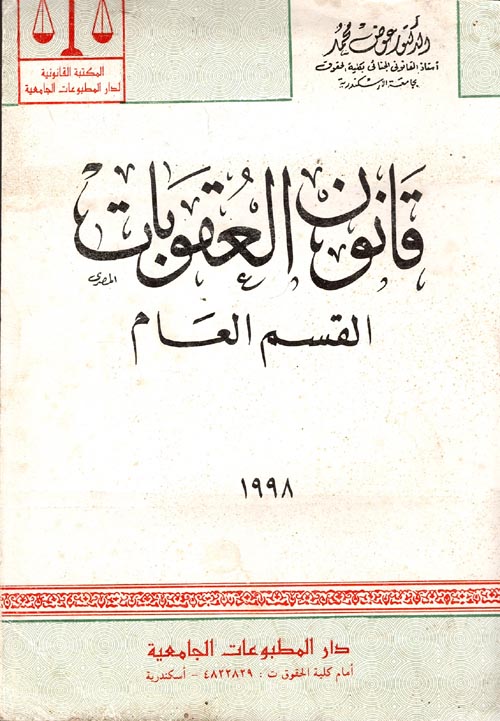 الدكتور عوض محمد
أستاذ القانون الجنائي بكلية الحقوق
بجامعة الإسكندرية
المكتبة القانونية
لدار المطبوعات الجامعية
قانون العقوبات
المصرى
القسم العام
١٩٩٨
دار المطبوعات الجامعية
أمام كلية الحقوق ت : ٤٨٢٢٨٢٩ - أسكندرية